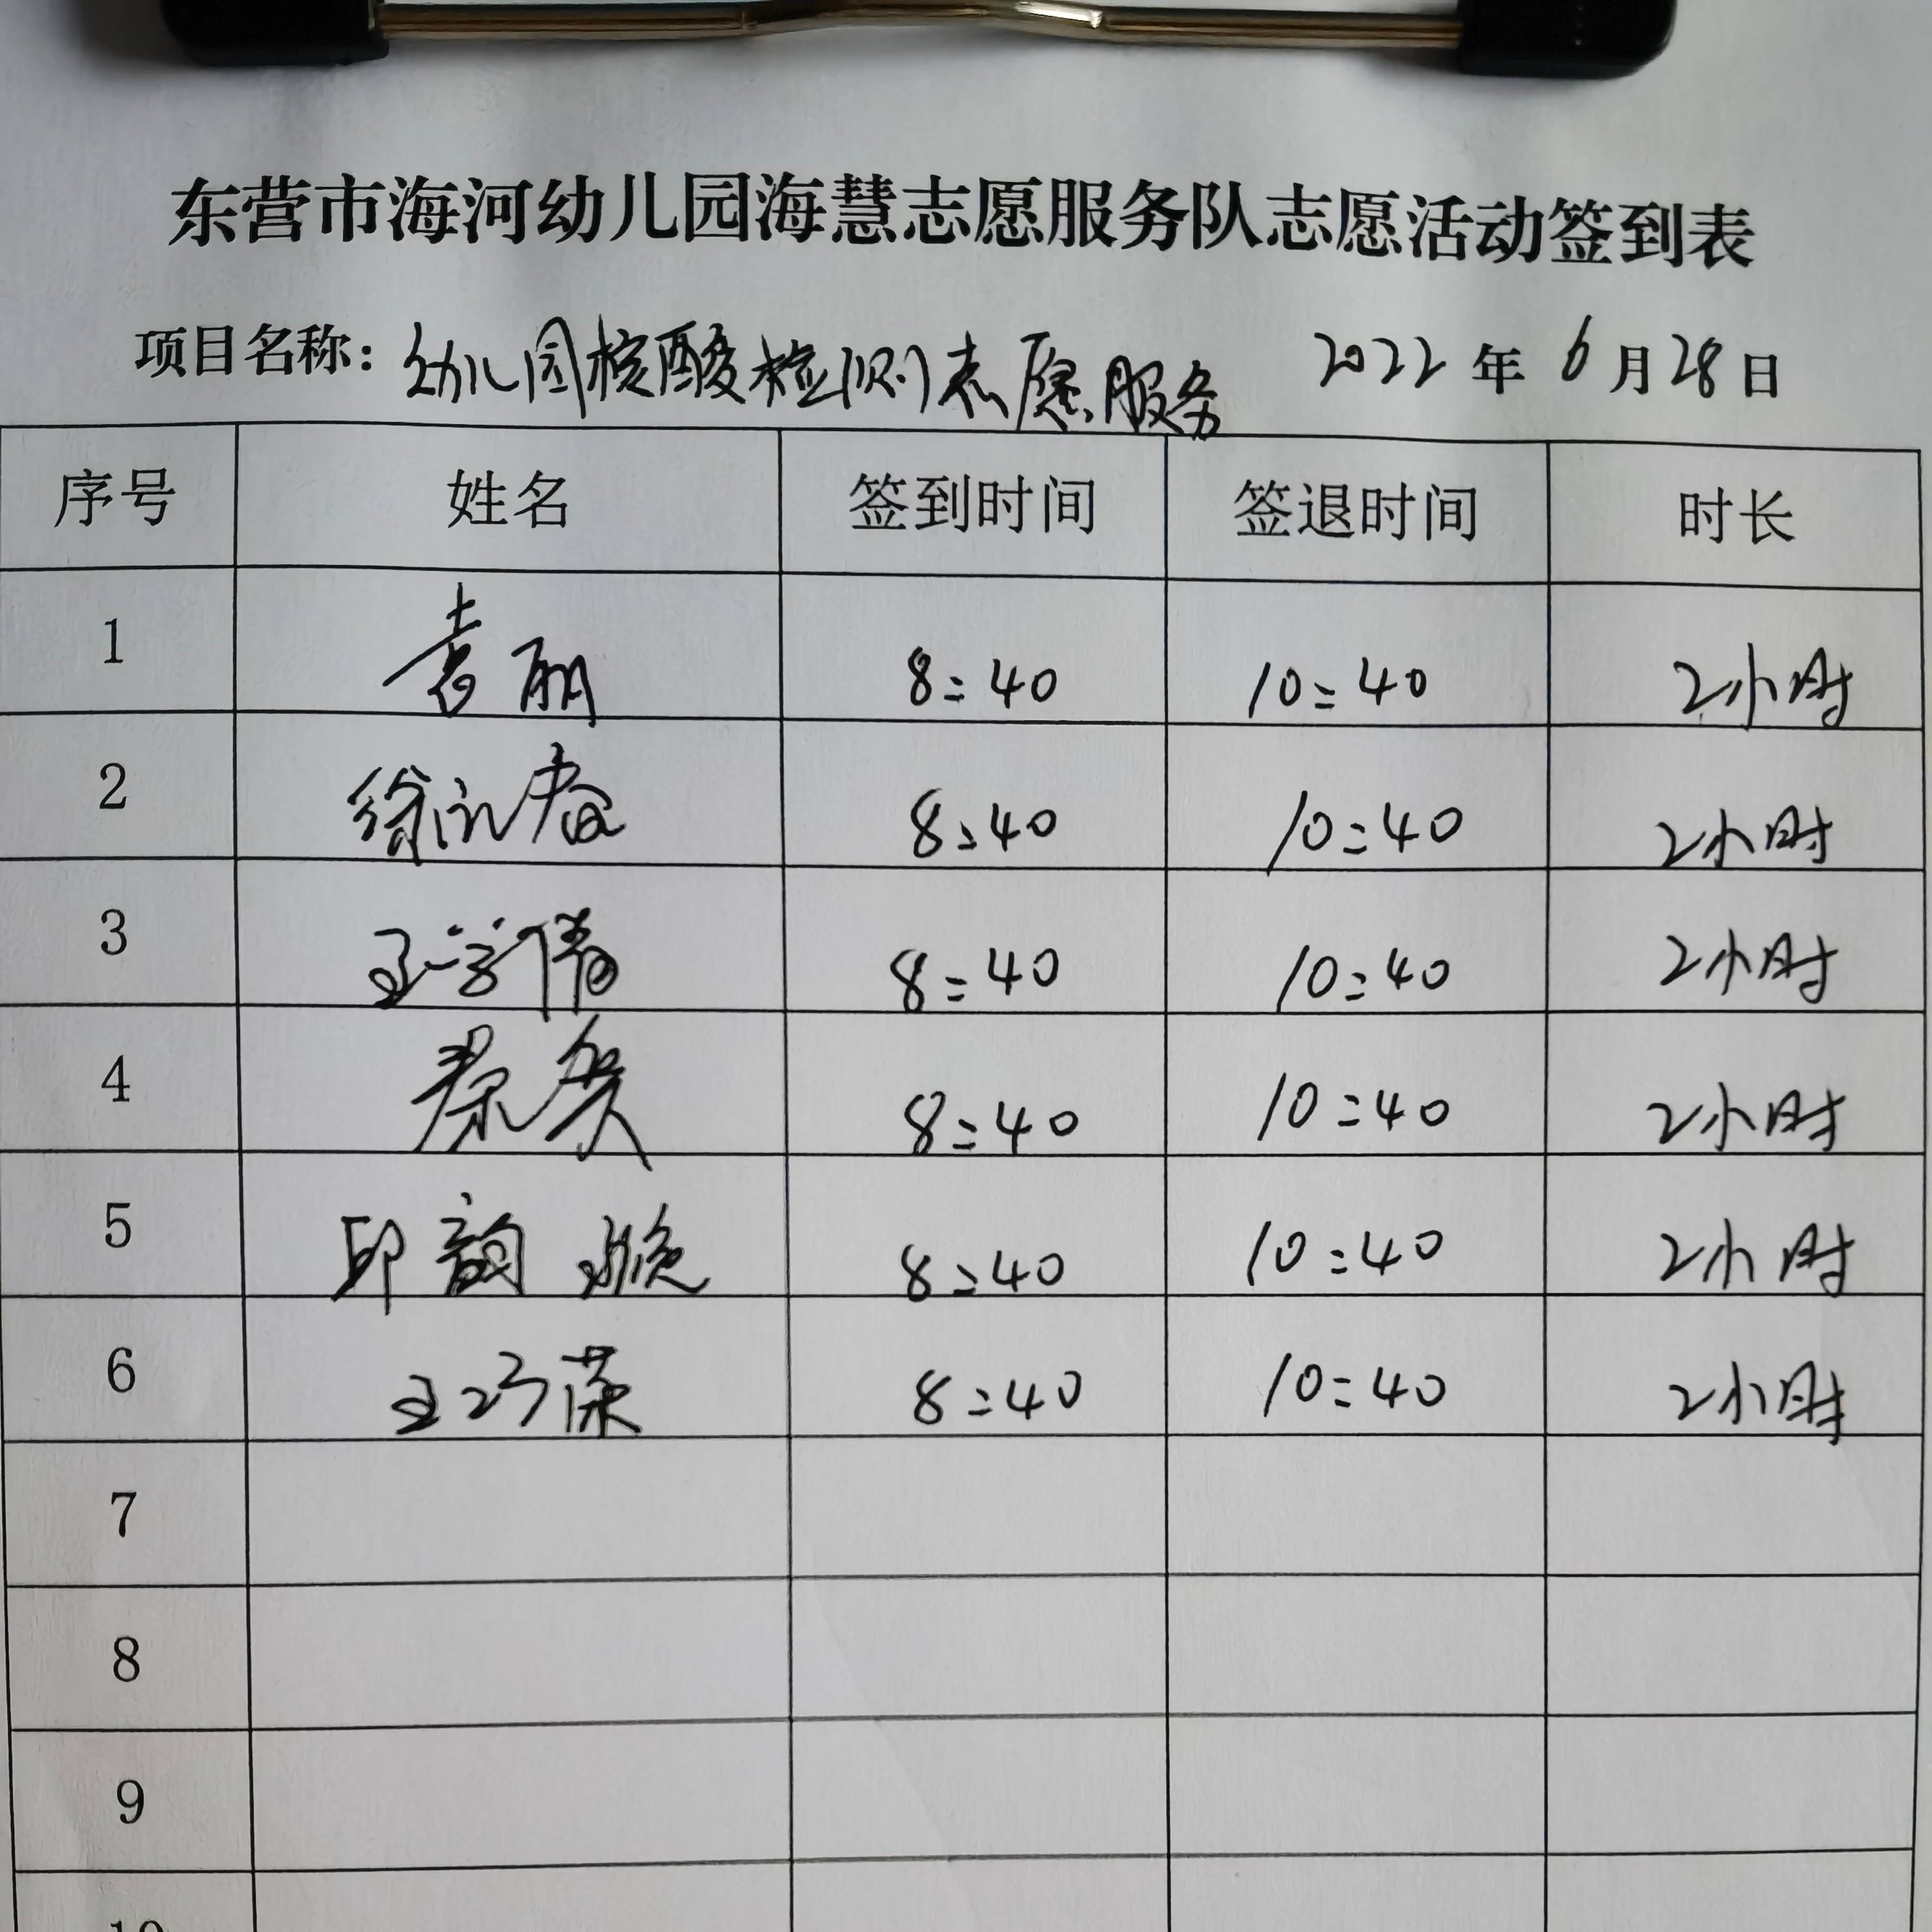 东营市海河幼儿园海慧志愿服务队志愿活动签到表
项目名称：幼儿园核酸检测志愿服务 2022年6月28日
序号 姓名 签到时间 签退时间 时长
1 袁丽 8:40 10:40 2小时
2 徐 春 8:40 10:40 2小时
3 王学倩 8:40 10:40 2小时
4 秦 8:40 10:40 2小时
5 邱韵 8:40 10:40 2小时
6 王巧荣 8:40 10:40 2小时
7
8
9
10